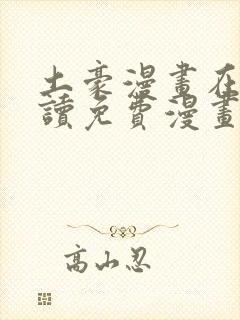 土豪漫畫在
讀免費漫畫
高山忍